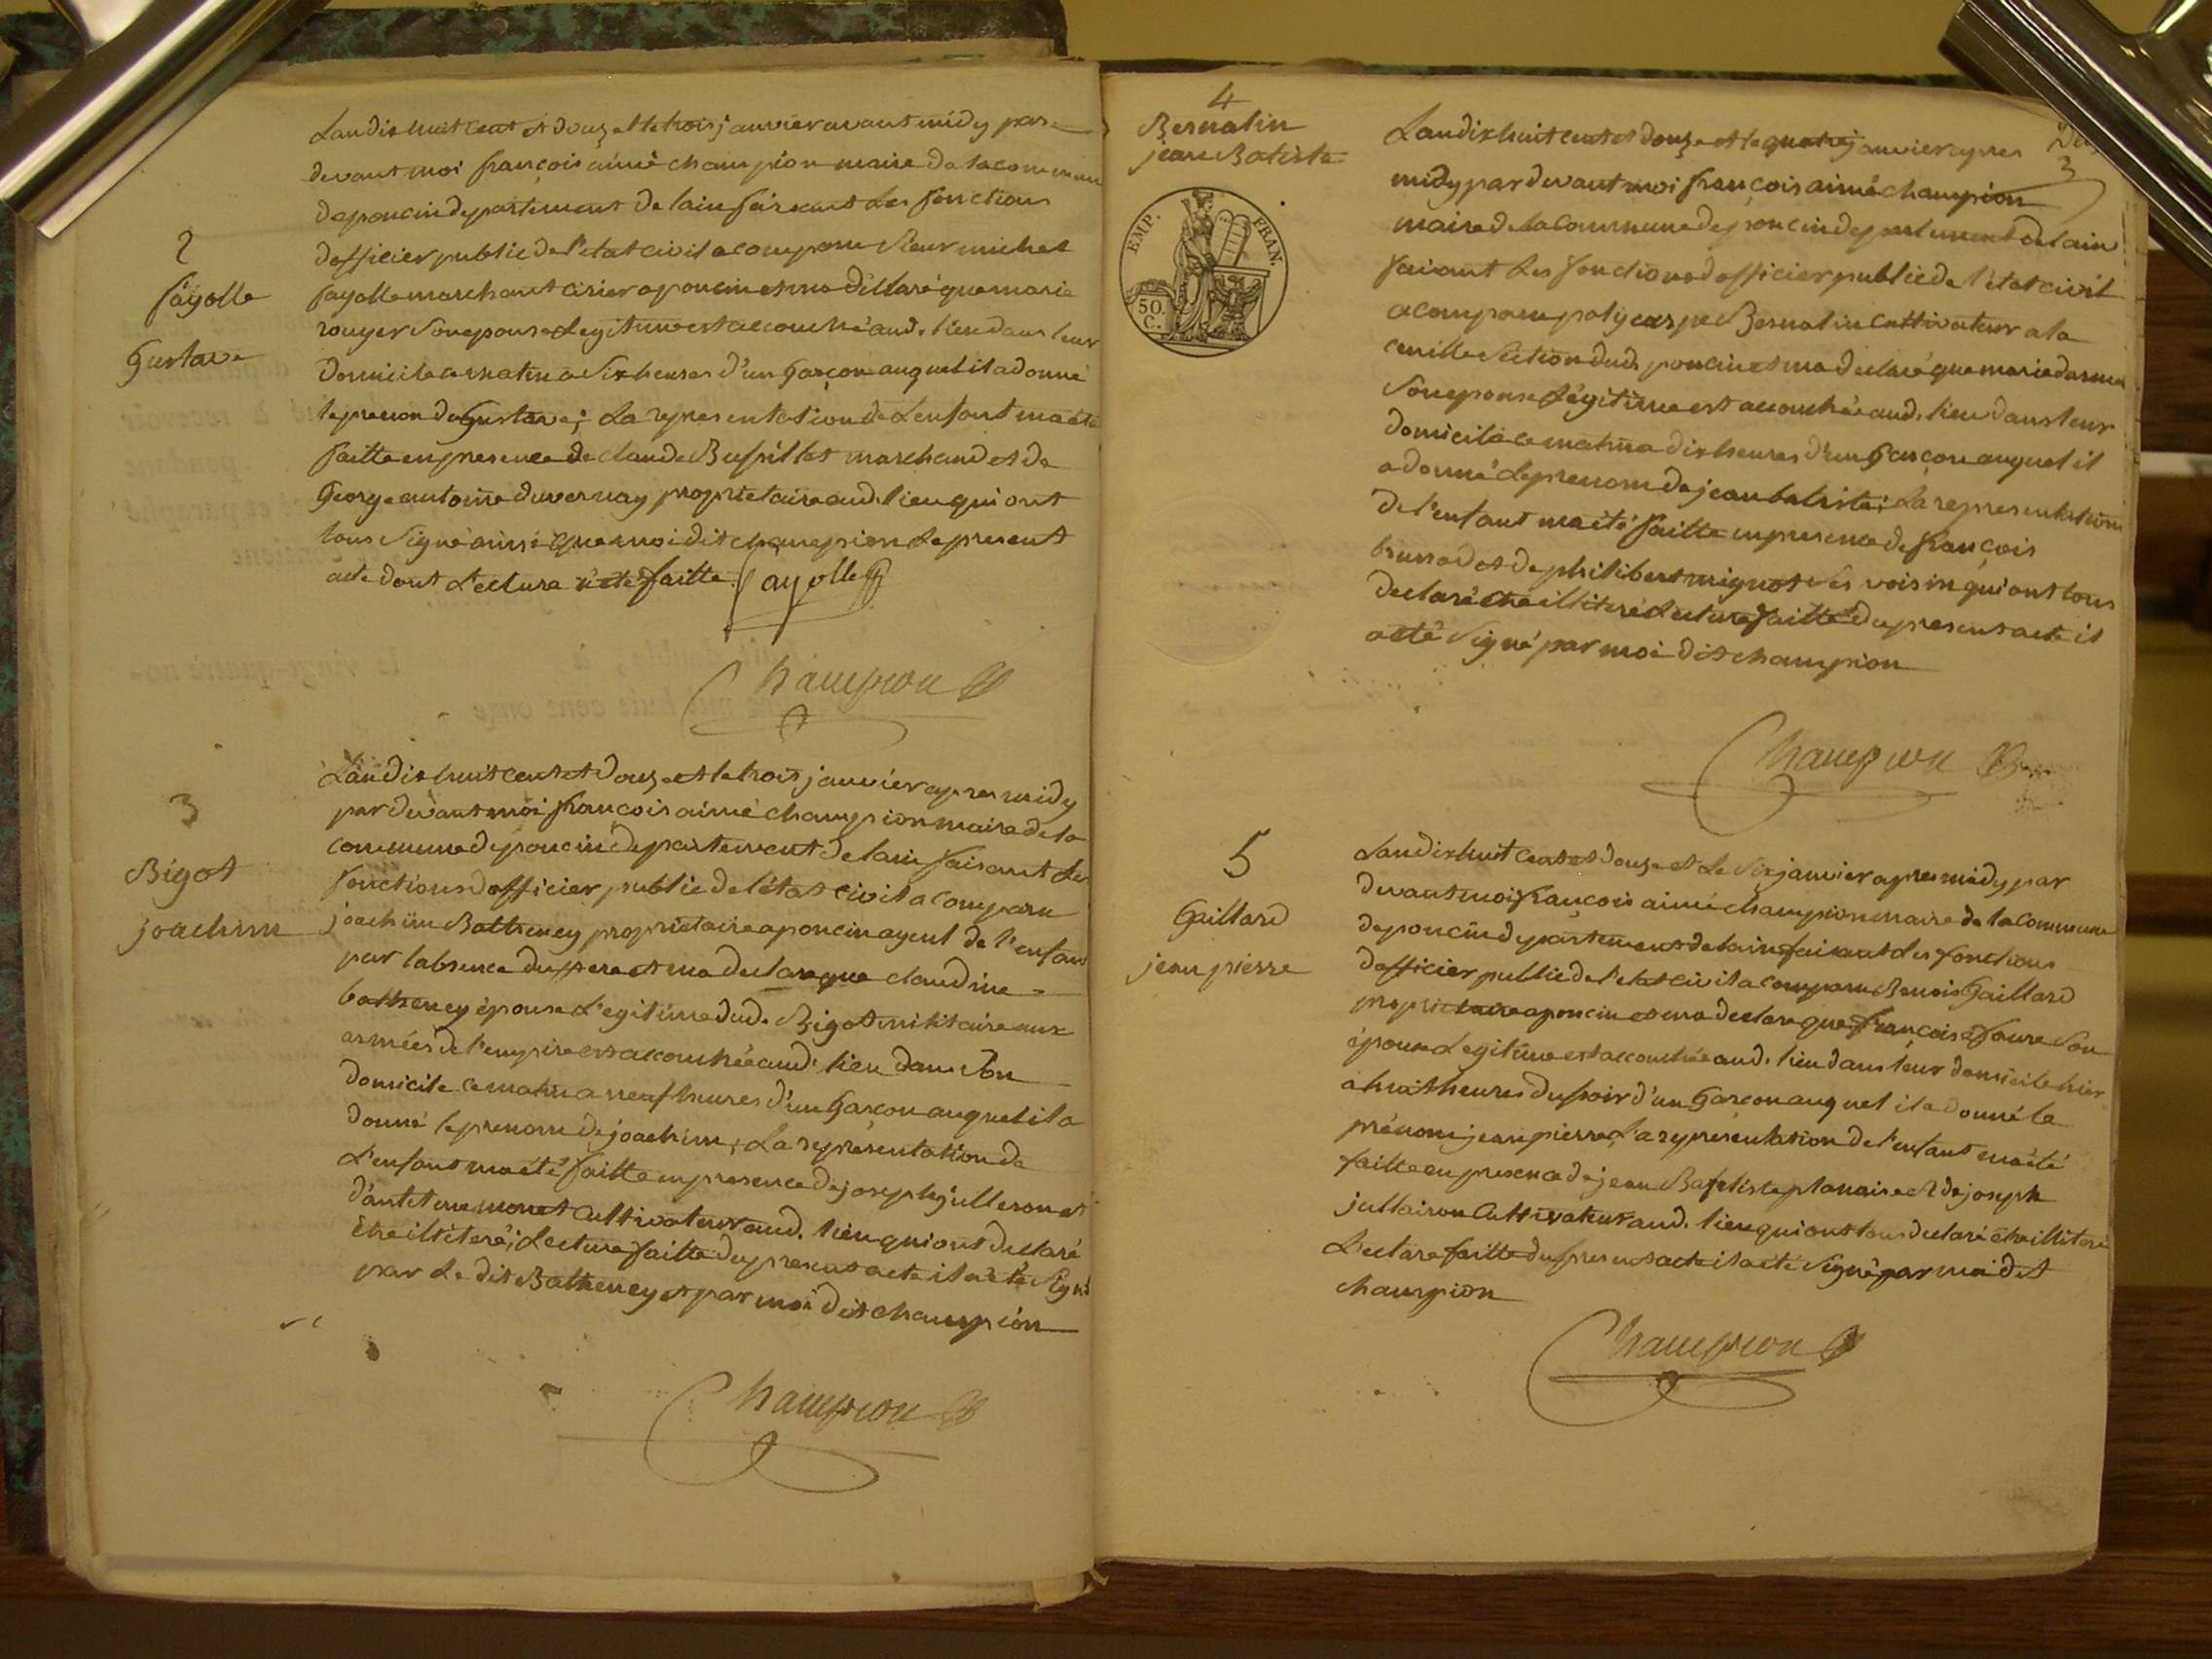 2
fayolle
Gustave
Landix huit cent et douze et le trois janvier avant midy par
devant moi françois aimé champion maire de la commune
de poncin departement de lain faisant les fonctions
dofficier public de l'etat civil a comparu sieur michel
fayolle marchant cirier a poncin et ma déclaré que marie
rouyer son epouse Legitime est accouché aud. lieu dans leur
domicile ce matin a six heures d'un Garçon auquel il a donné
le prenom de Gustave; La representation de L'enfant ma été
faitte en presence de claude marchand et de
George antoine duvernay proprietaire aud. lieu qui ont
tous signé ainsi que moi dit champion Le present
acte dont Lecture a été faitte. fayolle
Champion
3
Bigot
joachim
Landix huit cent et douze et le trois janvier apres midy
par devant moi françois aimé champion maire de la
commune de poncin departement de lain faisant les
fonctions dofficier public de l'état civil a comparu
joachim Batheney proprietaire a poncin ayeul de l'enfant
par labsence du pere et ma declare que claudine
batheney épouse L'egitime dud. Bigot militaire aux
armées de l'empire est accouchée aud. lieu dans son
domicile ce matin a neuf heures d'un Garçon auquel il a
donné le prenom de joachim; La représentation de
L'enfant ma été faitte en presence de joseph et
monet cultivateur aud. lieu qui ont declaré
être illiteré; Lecture faitte du present acte il a été signé
par Le dit Batheney et par moi dit champion
Champion
4
Bernalin
jean Batiste
EMP. FRAN.
50.
C.
Landix huit cent et douze et le quatre janvier apres
3
midy par devant moi françois aimé champion
maire de la commune de poncin departement de lain
faisant Les fonctions dofficier public de l'état civil
a comparu policarpe Bernalin cultivateur a la
section dud. poncin et ma declaré que marie
son epouse Légitime est accouchée aud. lieu dans leur
domicile ce matin a dix heures d'un Garçon auquel il
a donné Le prenom de jean batiste; La representation
de l'enfant ma été faitte en presence de françois
et de philibert mignot ses voisin qui ont tous
declaré être illiteré Lecture faitte du present acte il
a été signé par moi dit champion
Champion
5
Gaillard
jean pierre
Landix huit cent et douze et Le six janvier apres midy par
devant moi françois aimé champion maire de la commune
de poncin departement de lain faisant les fonctions
dofficier public de l'etat civil a comparu Benois Gaillard
proprietaire a poncin et ma declaré que françoise faure son
épouse Legitime est accouchée aud. lieu dans leur domicile hier
a huit heures du soir d'un Garçon auquel il a donné le
prénom jean pierre La représentation de l'enfant ma été
faitte en presence de jean Baptiste et de joseph
jullairon cultivateur aud. lieu qui ont tous declaré être illiteré
Lecture faitte du present acte il a été signé par moi dit
champion
Champion